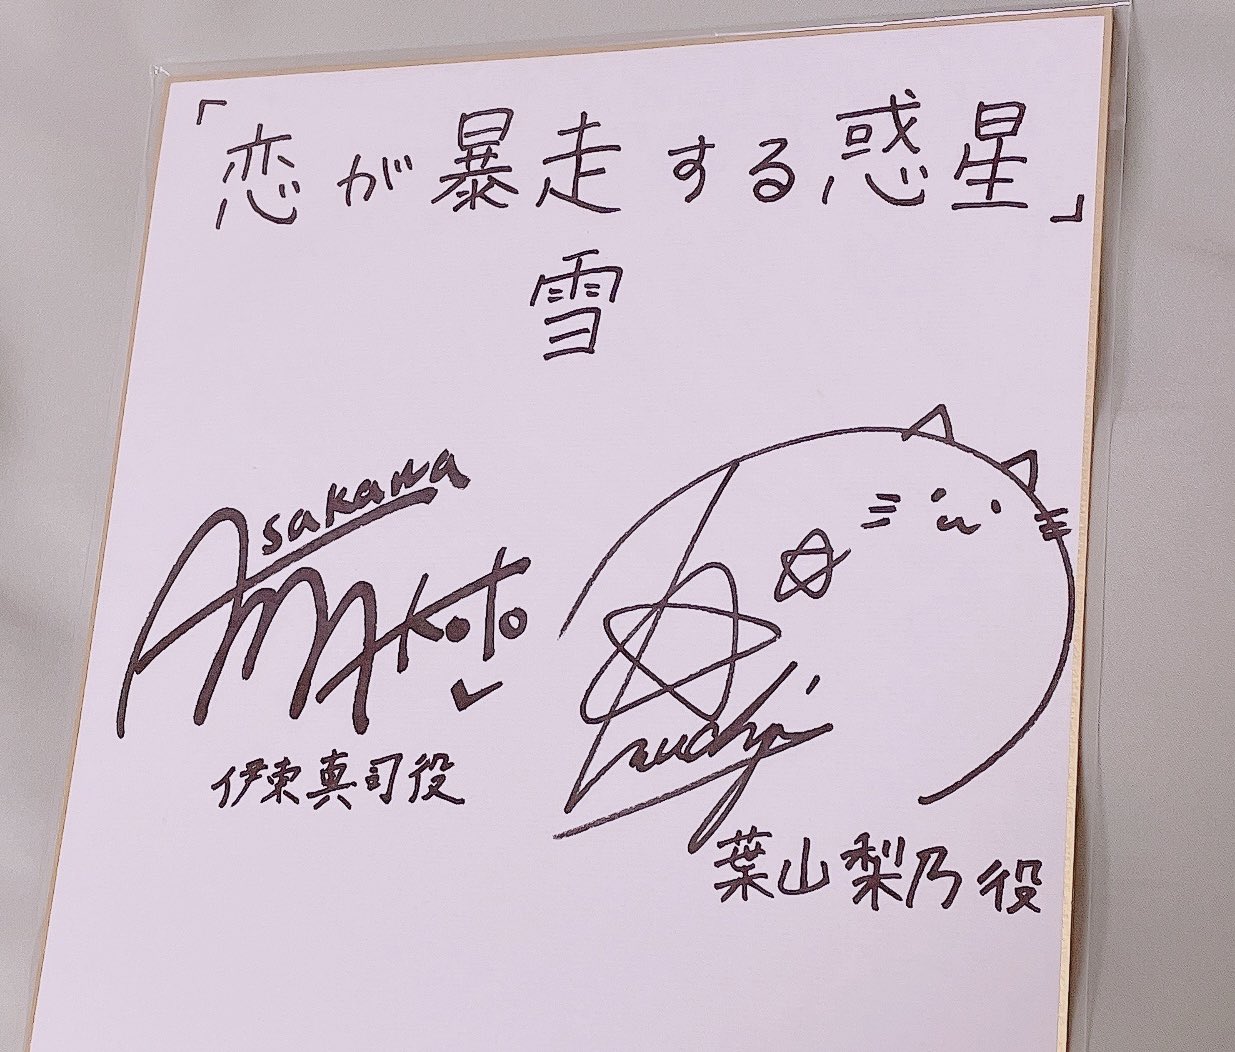 「恋が暴走する惑星」
雪
Asakawa
MAkoto
伊東真司役
葉山梨乃役